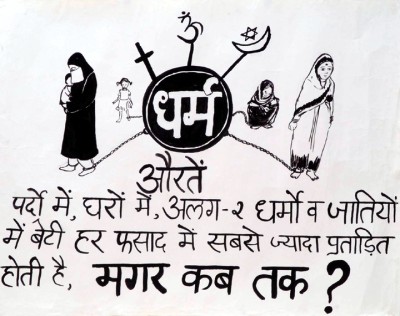 ॐ
धर्म
औरतें
पर्दो में, घरों में, अलग-२ धर्मो व जातियों
में बेटी हर फसाद में सबसे ज्यादा प्रताड़ित
होती है, मगर कब तक ?